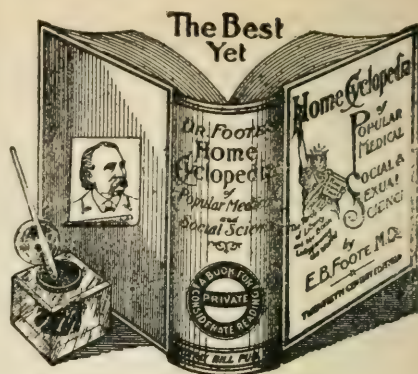 The Best
Yet
DR. FOOTE'S
Home
Cyclopedia
of
Popular Medical
and
Social Science
A BOOK FOR
PRIVATE
CONSIDERATE READING
HILL PUB
Home Cyclopedia
of
POPULAR
MEDICAL
SOCIAL &
SEXUAL
SCIENCE
by
E.B. FOOTE, M.D.
TWENTIETH CENTURY EDITION